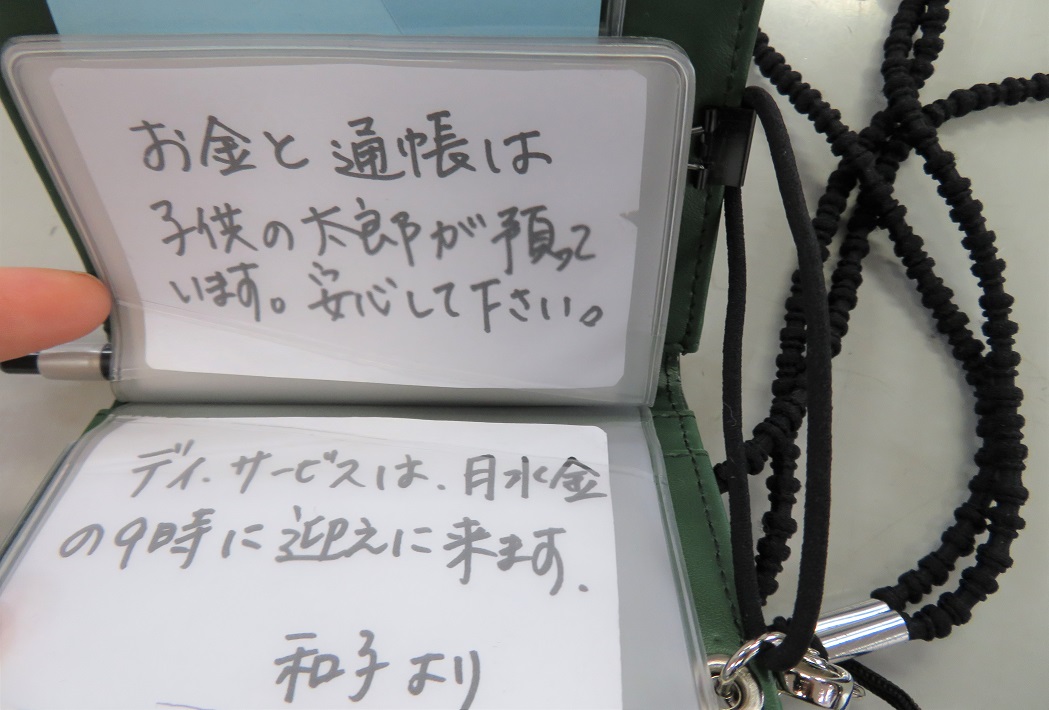 お金と通帳は
子供の太郎が預って
います。安心して下さい。
デイ.サービスは、月水金
の9時に迎えに来ます.
和子より